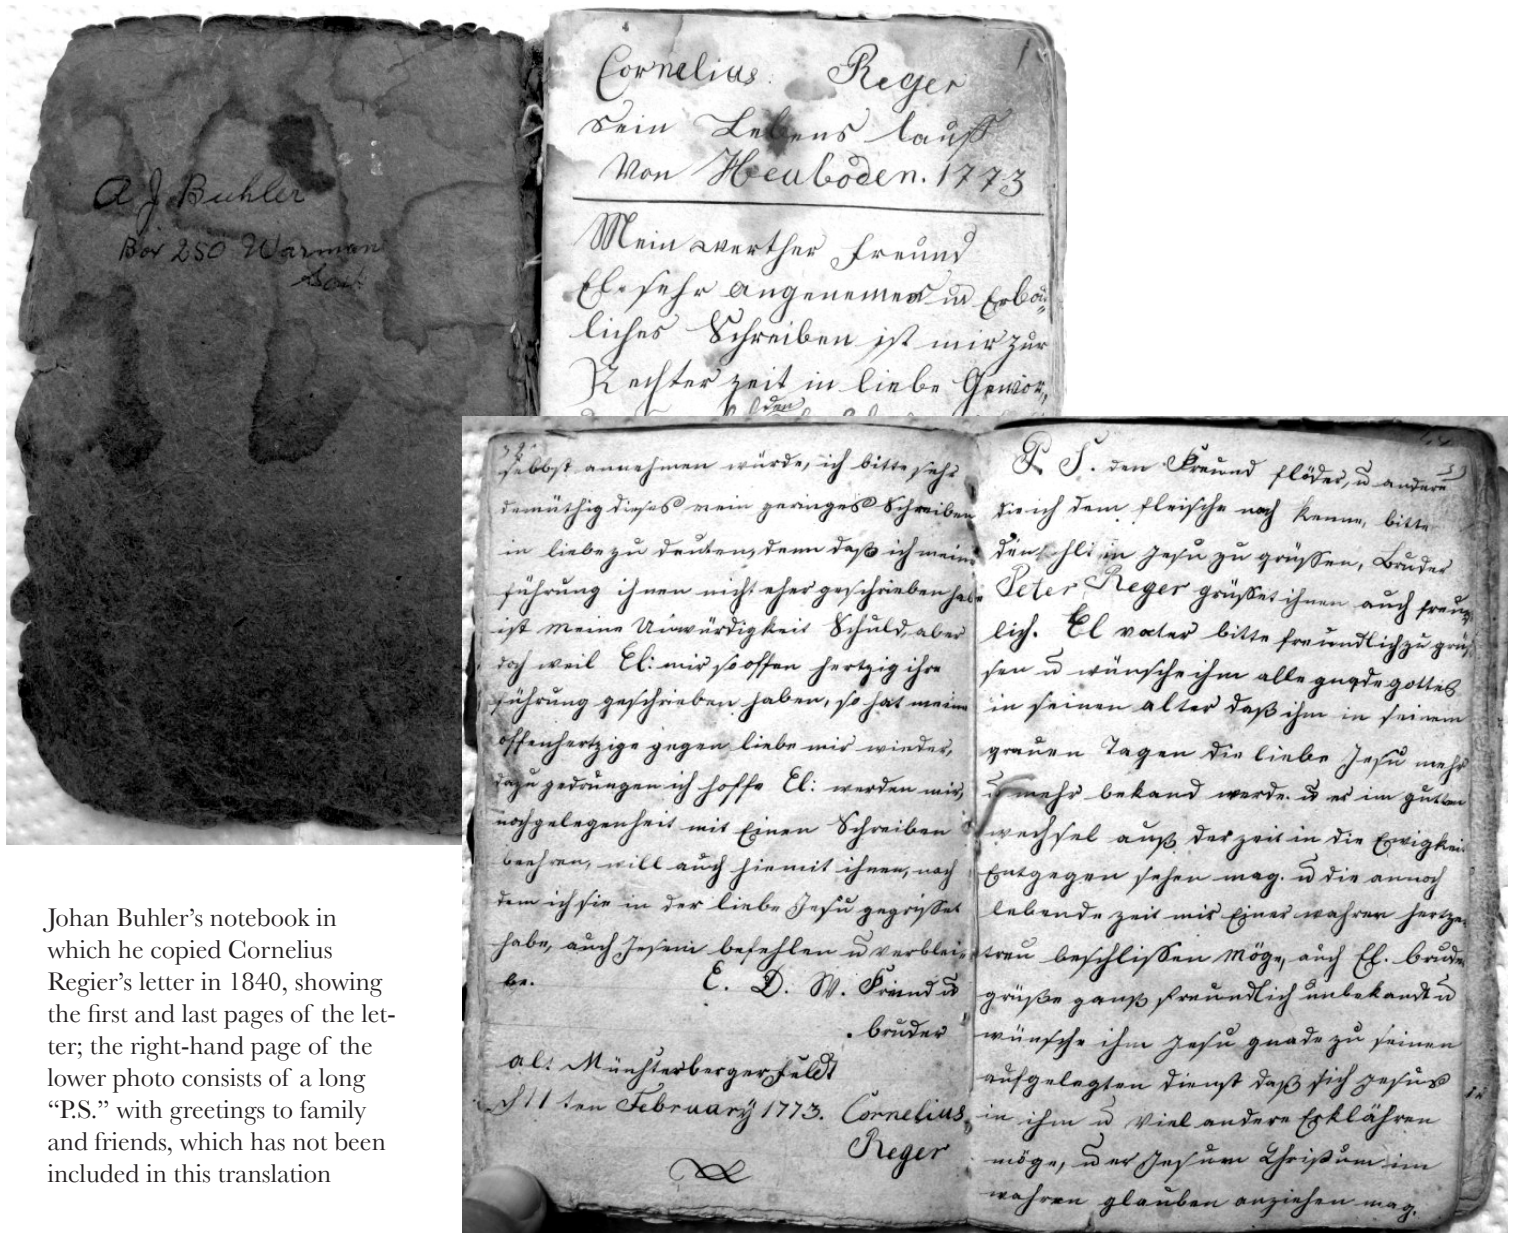 A J Buhler
Box 250 Warman
Sask
1
Cornelius Reger
sein Lebens lauff
Von Heuboden. 1773
Mein werther freund
El. sehr angenemes u Erbau=
liches Schreiben ist mir zur
Rechter zeit in liebe Gewor,
den
selbst annehmen würde, ich bitte sehr
demüthig dieses mein geringes Schreiben
in liebe zu deuten, denn daß ich meine
führung ihnen nicht eher geschrieben habe
ist meine Unwürdigkeit Schuld, aber
doch weil El: mir so offen hertzig ihre
führung geschrieben haben, so hat meine
offenhertzige gegen liebe mir wieder,
dazu gedrungen ich hoffe El: werden mir,
nachgelegenheit mit Einen Schreiben
beehren, will auch hiemit ihnen, nach
dem ich sie in der liebe Jesu gegrüsset
habe, auch Jesum befehlen u verblei=
be. E. D. W. Freund u
bruder
alt Münsterbergerfeldt
d 11 ten February 1773. Cornelius
Reger
P. S. den Freund flöder, u andere
die ich dem fleische nach kenne, bitte
in Jesu zu grüssen, Bruder
Peter Reger grüsset ihnen auch freund
lich. El vater bitte freundlich zu grüs
sen u wünsche ihm alle gnade gottes
in seinen alter daß ihm in seinem
grauen Tagen die liebe Jesu mehr
u mehr bekand werde. u er im gutten
wechsel auß der zeit in die Ewigkeit
Entgegen sehen mag. u die annoch
lebende zeit mit Einer wahren hertzens
treu beschlissen möge, auch El. bruder
grüße gantz freundlich unbekandt u
wünsche ihm Jesu gnade zu seinen
aufgelegten dienst daß sich Jesus
in ihm u viel andere Erklähren
möge, u er Jesum Christum im
wahren glauben anziehen mag.
Johan Buhler’s notebook in
which he copied Cornelius
Regier’s letter in 1840, showing
the first and last pages of the let-
ter; the right-hand page of the
lower photo consists of a long
“P.S.” with greetings to family
and friends, which has not been
included in this translation